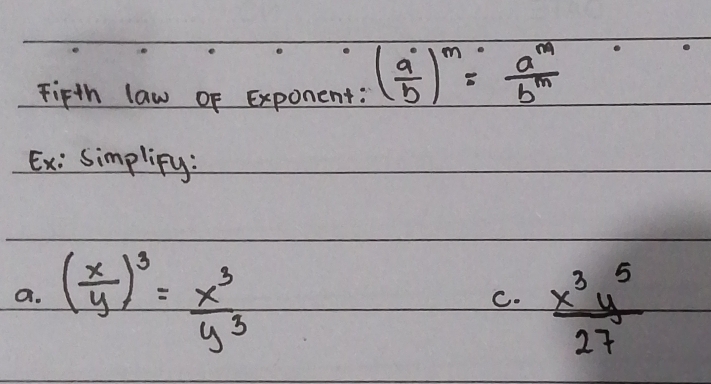 Fifth law of Exponent: (a/b)^m = a^m/b^m
Ex: Simplify:
a. (x/y)^3 = x^3/y^3
c. x^3 y^5/27